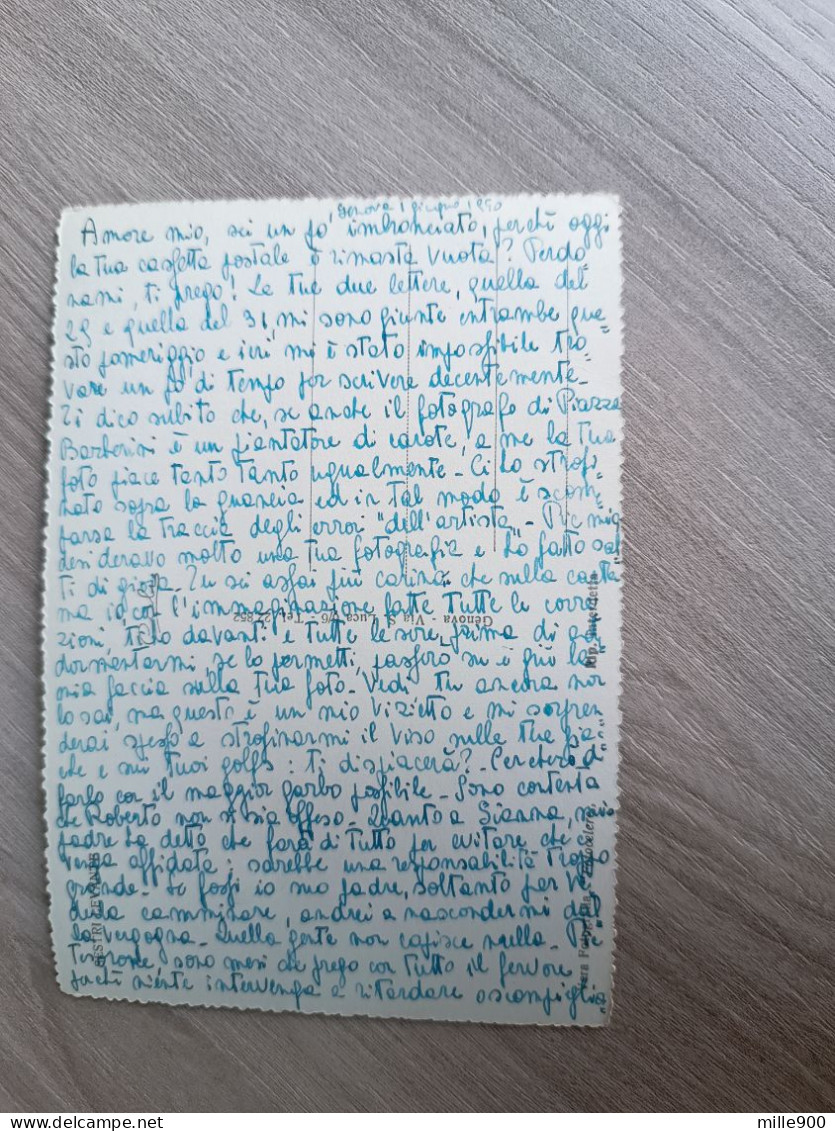 Genova 1 giugno 1950
Amore mio, sei un po' imbronciato, perché oggi
la tua cassetta postale è rimasta vuota? Perdo=
nami, ti prego! Le tue due lettere, quella del
29 e quella del 31, mi sono giunte entrambe que=
sto pomeriggio e ieri mi è stato impossibile tro=
vare un po' di tempo per scrivere decentemente.
Ti dico subito che, se anche il fotografo di Piazza
Barberini è un piantatore di carote, a me la tua
foto piace tanto tanto ugualmente. Ci ho strofi=
nato sopra la guancia ed in tal modo è scom=
parsa la traccia degli errori "dell'artista".
desideravo molto una tua fotografia e ho fatto sal
ti di gioia. Tu sei assai più carina che sulla carta
ma io con l'immaginazione fatte tutte le corre
zioni, ti ho davanti e tutte le sere, prima di ad
dormentarmi, se lo permetti, passerò su e giù la
mia faccia sulla tua foto. Vedi tu ancora non
lo sai, ma questo è un mio vizietto e mi sorpren
derai spesso a strofinarmi il viso sulle tue gia=
che e sui tuoi golfs: ti dispiacerà? Cercherò di
farlo con il maggior garbo possibile. Sono contenta
che Roberto non si sia offeso. Quanto a Gianna, mio
padre ha detto che farà di tutto per evitare che
venga affidata: sarebbe una responsabilità troppo
grande. Se fossi io suo padre, soltanto per ve
derla camminare, andrei a nascondermi dal=
la vergogna. Quella gente non capisce nulla.
sono mesi che prego con tutto il fervore
perché niente intervenga a ritardare o scompiglia=
Genova - Via S. Luca 7/6 - Tel. 22.852
SESTRI LEVANTE
Vera Fotografia
Rip. interdetta
mille900